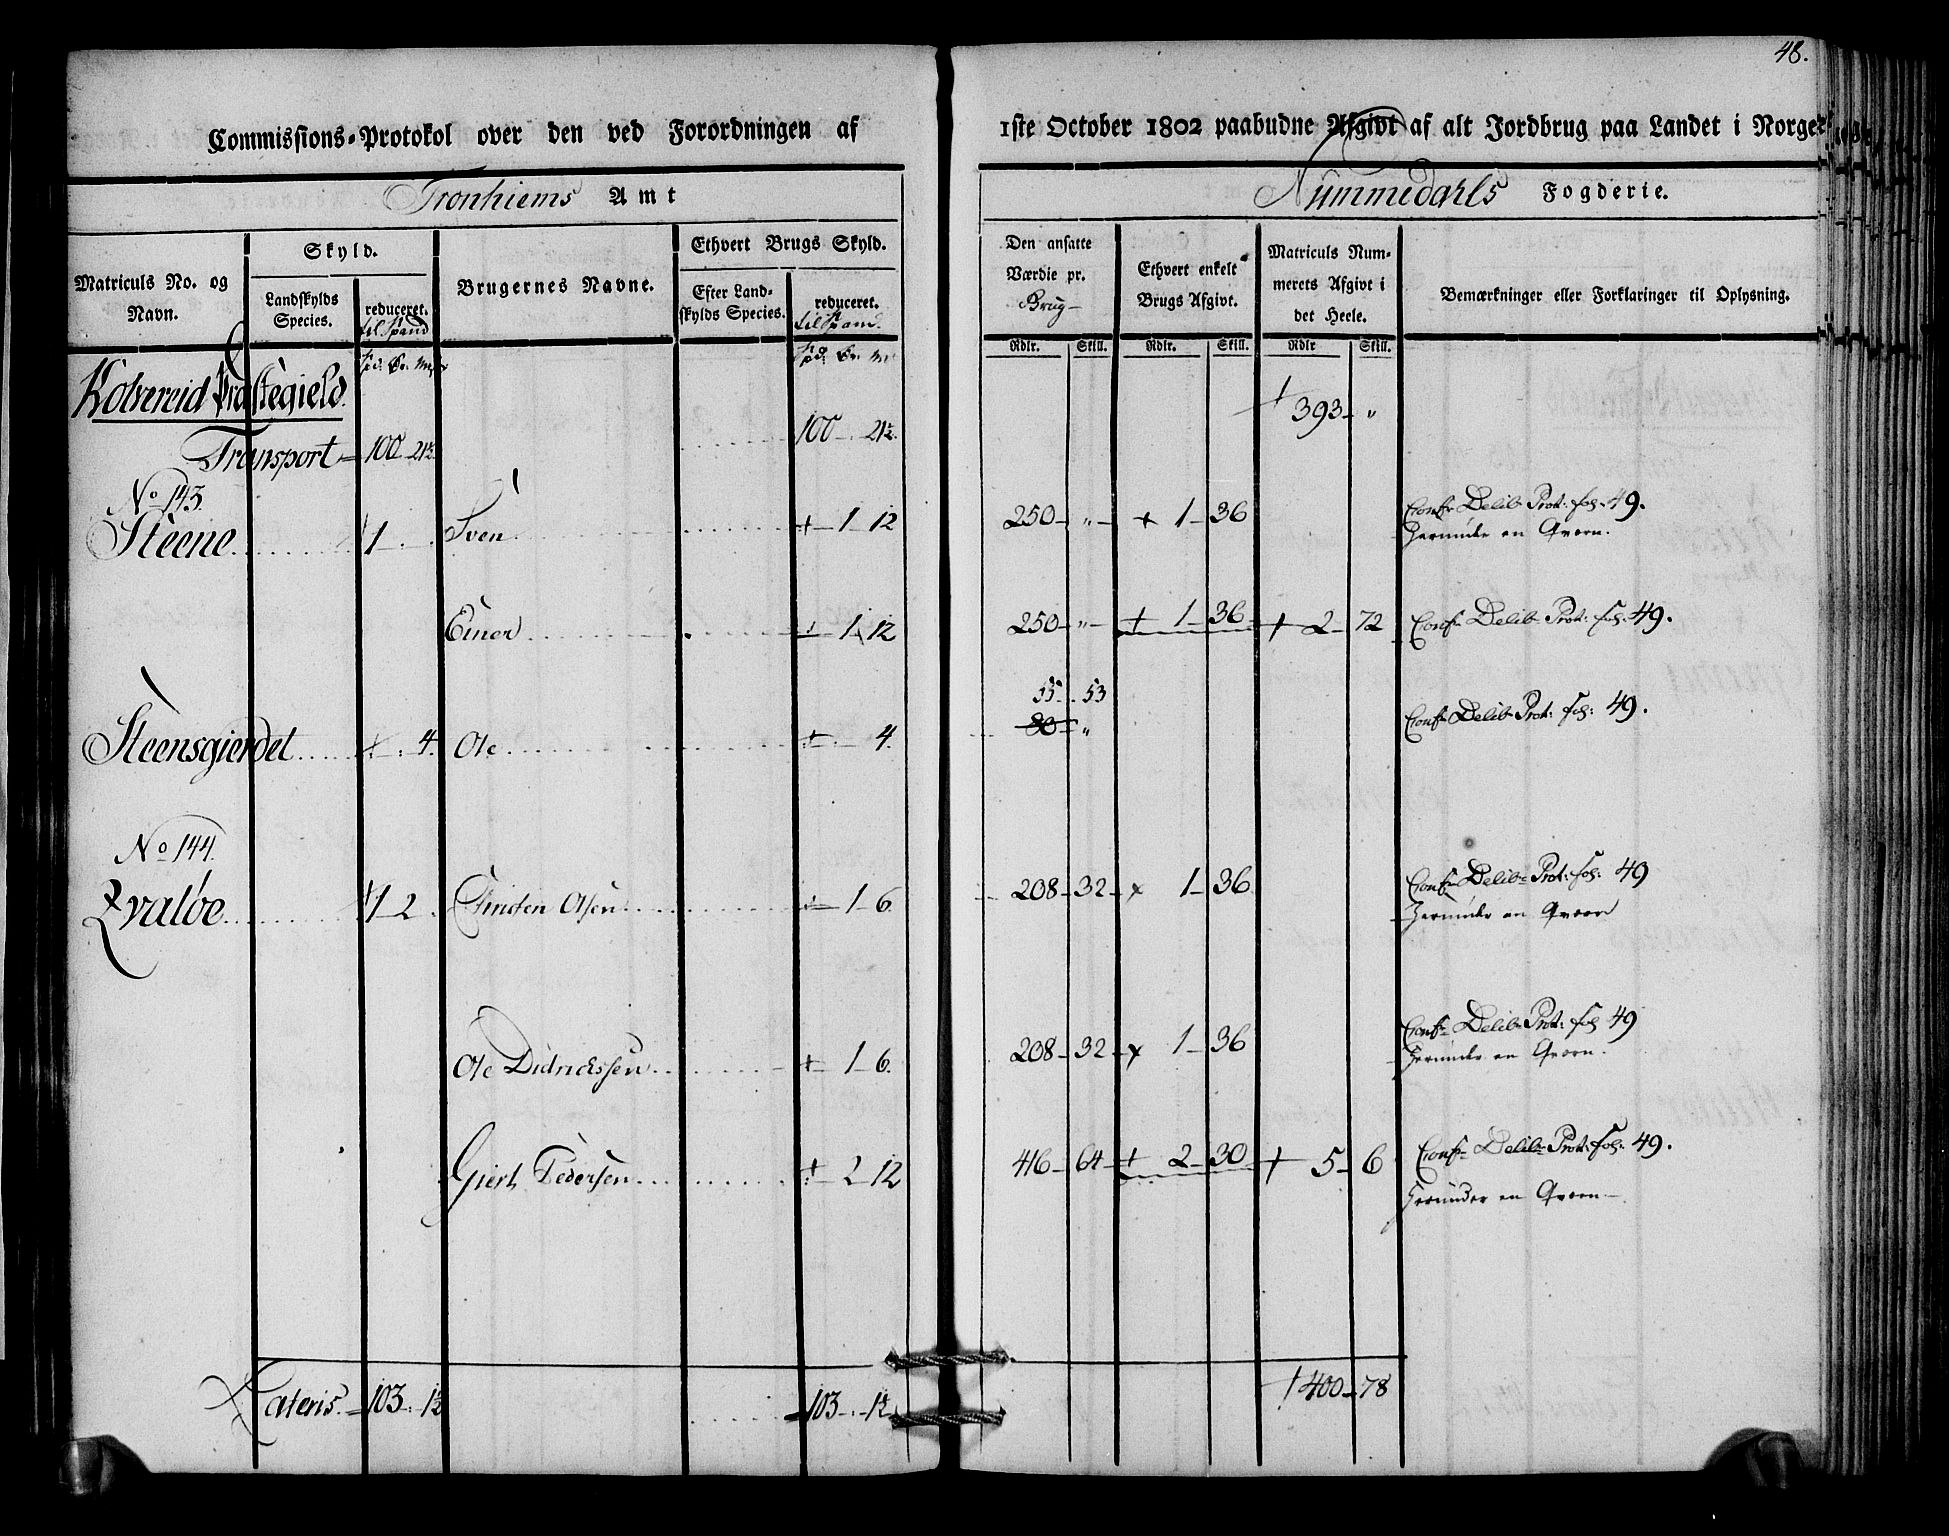 48.
Commissions-Protokol over den ved Forordningen af 1ste October 1802 paabudne Afgivt af alt Jordbrug paa Landet i Norge
Tronhiems Amt
Nummedahls Fogderie.
Matriculs No. og Navn.
Skyld.
Landskylds Species.
reduceret. til Spand
Brugernes Navne.
Ethvert Brugs Skyld.
Efter Landskylds Species.
reduceret. til Spand.
Den ansatte Værdie pr. Brug
Ethvert enkelt Brugs Afgivt.
Matriculs Nummerets Afgivt i det Heele.
Bemærkninger eller Forklaringer til Oplysning.
Rdlr. Skill. Rdlr. Skill. Rdlr Skill.
Kolvereid Præstegield.
Transport 100 21½ 100 21½. 393 "
No 143.
Steene 1 Sven 1 12 250 " 1 36 Conf Delib Prot: fol. 49.
Herunder en Qvern.
Einer 1 12 250 " 1 36 2 72 Conf Delib Prot: fol: 49.
55 53
Steensgierdet 4. Ole 4. 80 " Conf Delib Prot: fol: 49.
No 144.
Qvaløe 1 2 Finden Olsen 1 6. 208 32 1 36 Conf Delib Prot: fol: 49
Herunder en Qvern
Ole Didrichssen 1 6. 208 32 1 36 Conf Delib Prot: fol 49
Herunder en Qvern.
Giert Pedersen 2 12 416 64 2 30 5 6 Conf Delib Prot: fol: 49.
Herunder en Qvern
Lateris 103 1½ 103 1½ 400 78